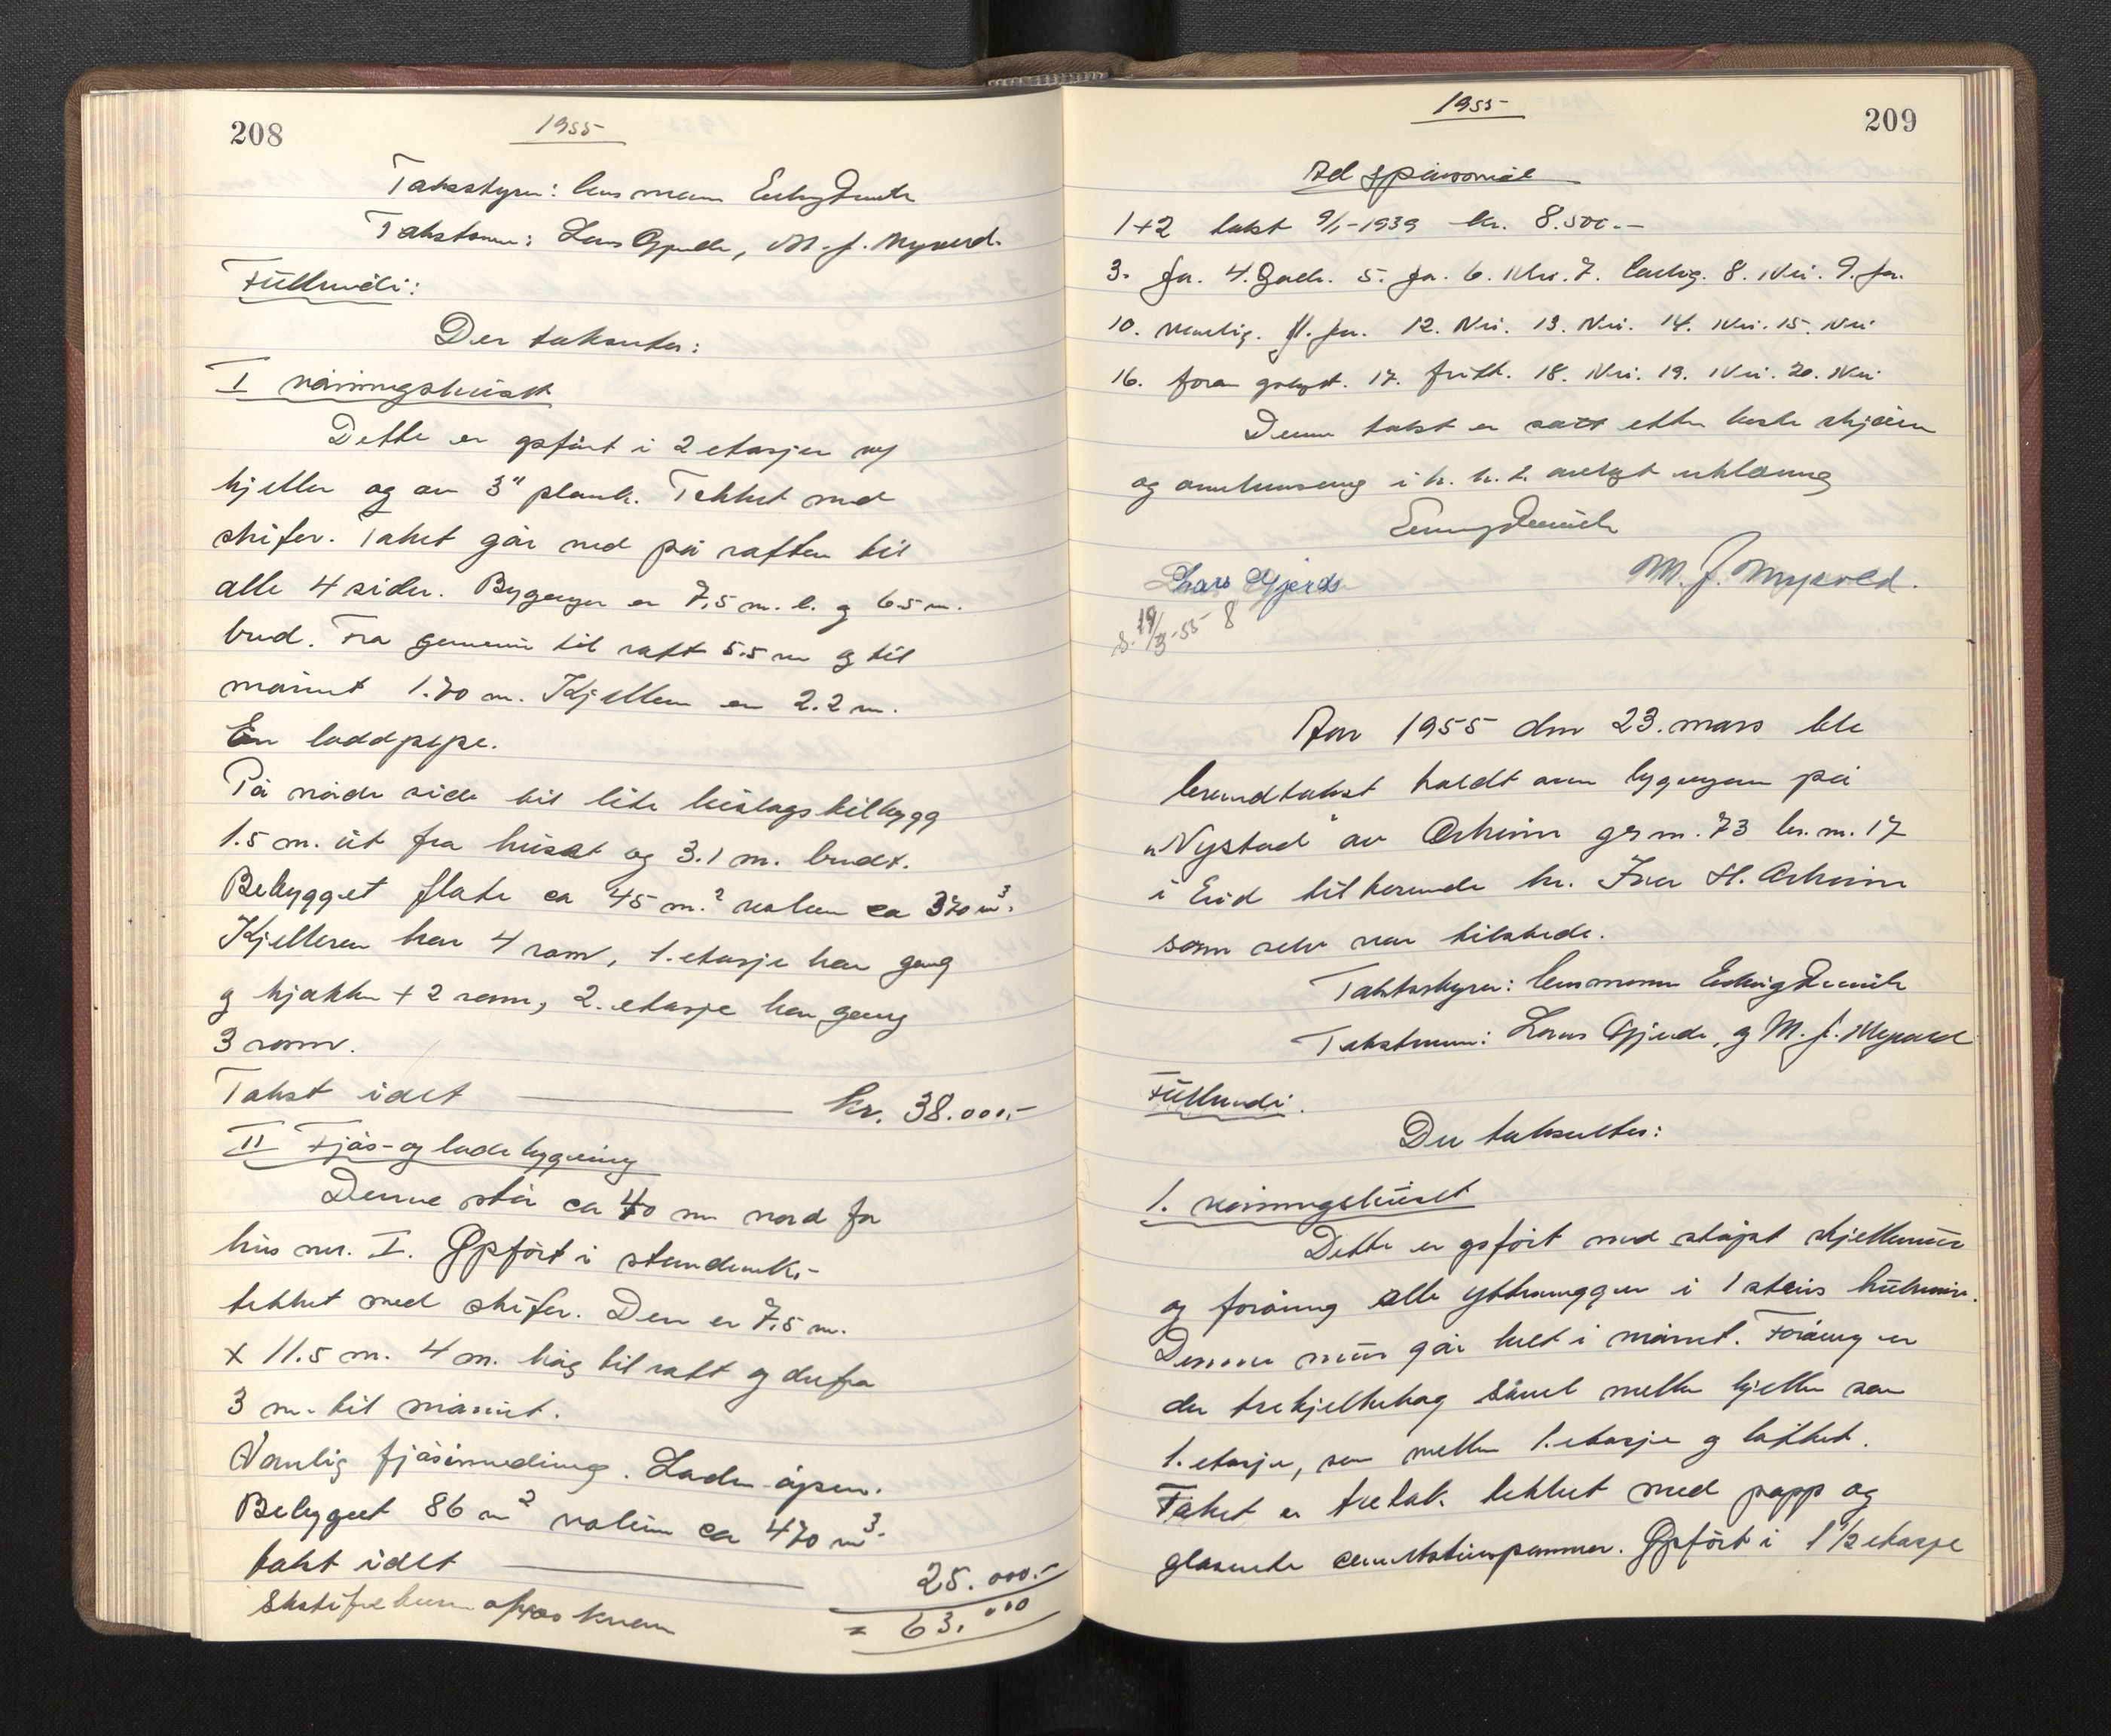 208
1955
Takstskyn: lensmann
Takstmenn: Lars Gjerde, M. J. Myrvold.
Fullundi:
Der taksertes:
I våningshuset
Dette er opført i 2 etasjer m/
kjeller og av 3" plank. Tekket med
skifer. Taket går ned på raften til
alle 4 sider. Bygningen er 7,5 m. l. og 6.5 m.
bred. Fra grunnmur til raft 5.5 m og til
mønet 1.70 m. Kjelleren er 2.2 m.
En loddpipe.
På nordre side bit lite bislagstilbygg
1.5 m. ut fra huset og 3.1 m. bredt.
Bebygget flate ca 45 m.² volum ca 370 m³.
Kjelleren har 4 rom, 1. etasje har gang
og kjøkken + 2 rom, 2. etasje har gang
3 rom.
Takst idet kr. 38.000.-
II Fjøs- og ladebygning
Denne står ca 40 m nord for
hus nr. I. Oppført i
tekket med skifer. Den er 7,5 m.
x 11.5 m. 4 m. høg til raft og derfra
3 m. til mønet.
Vanlig fjøsinnredning. Laden åpen.
Bebygget 86 m² volum ca 470 m³.
takst idet 25.000.-
= 63.000
1955
209
Ad spørsmål
1+2 takst 9/1-1939 kr. 8.500.-
3. Ja. 4. Godt. 5. Ja. 6. Nei. 7. Lovlig. 8. Nei. 9. Ja.
10. Vanlig. 11. Ja. 12. Nei. 13. Nei. 14. Nei. 15. Nei
16. foran oplyst. 17. fritt. 18. Nei. 19. Nei. 20. Nei
Denne takst er satt etter beste skjønn
og overbevisning i h. h. t. avlagt erklæring
Lars Gjerde
M. J. Myrvold.
19/3-55
Aar 1955 den 23. mars ble
branntakst holdt over bygningen på
"Nystad" av Askvim gr. nr. 73 br. nr. 17
i Eid tilhørende hr. H. Askvim
som selv var tilstede.
Takstskyn: lensmann
Takstmenn: Lars Gjerde, og M. J. Myrvold
Fullundi.
Der taksertes:
1. våningshuset
Dette er opført med støpt kjellermur
og forøvrig alle yttervegger i 1 steins hulmur.
Denne mur går helt i mønet. Forøvrig er
der trebjelkelag såvel mellem kjeller som
1. etasje, som mellem 1. etasje og loftet.
Taket er tretak tekket med papp og
glaserte cementstenspanner. Oppført i 1 1/2 etasje